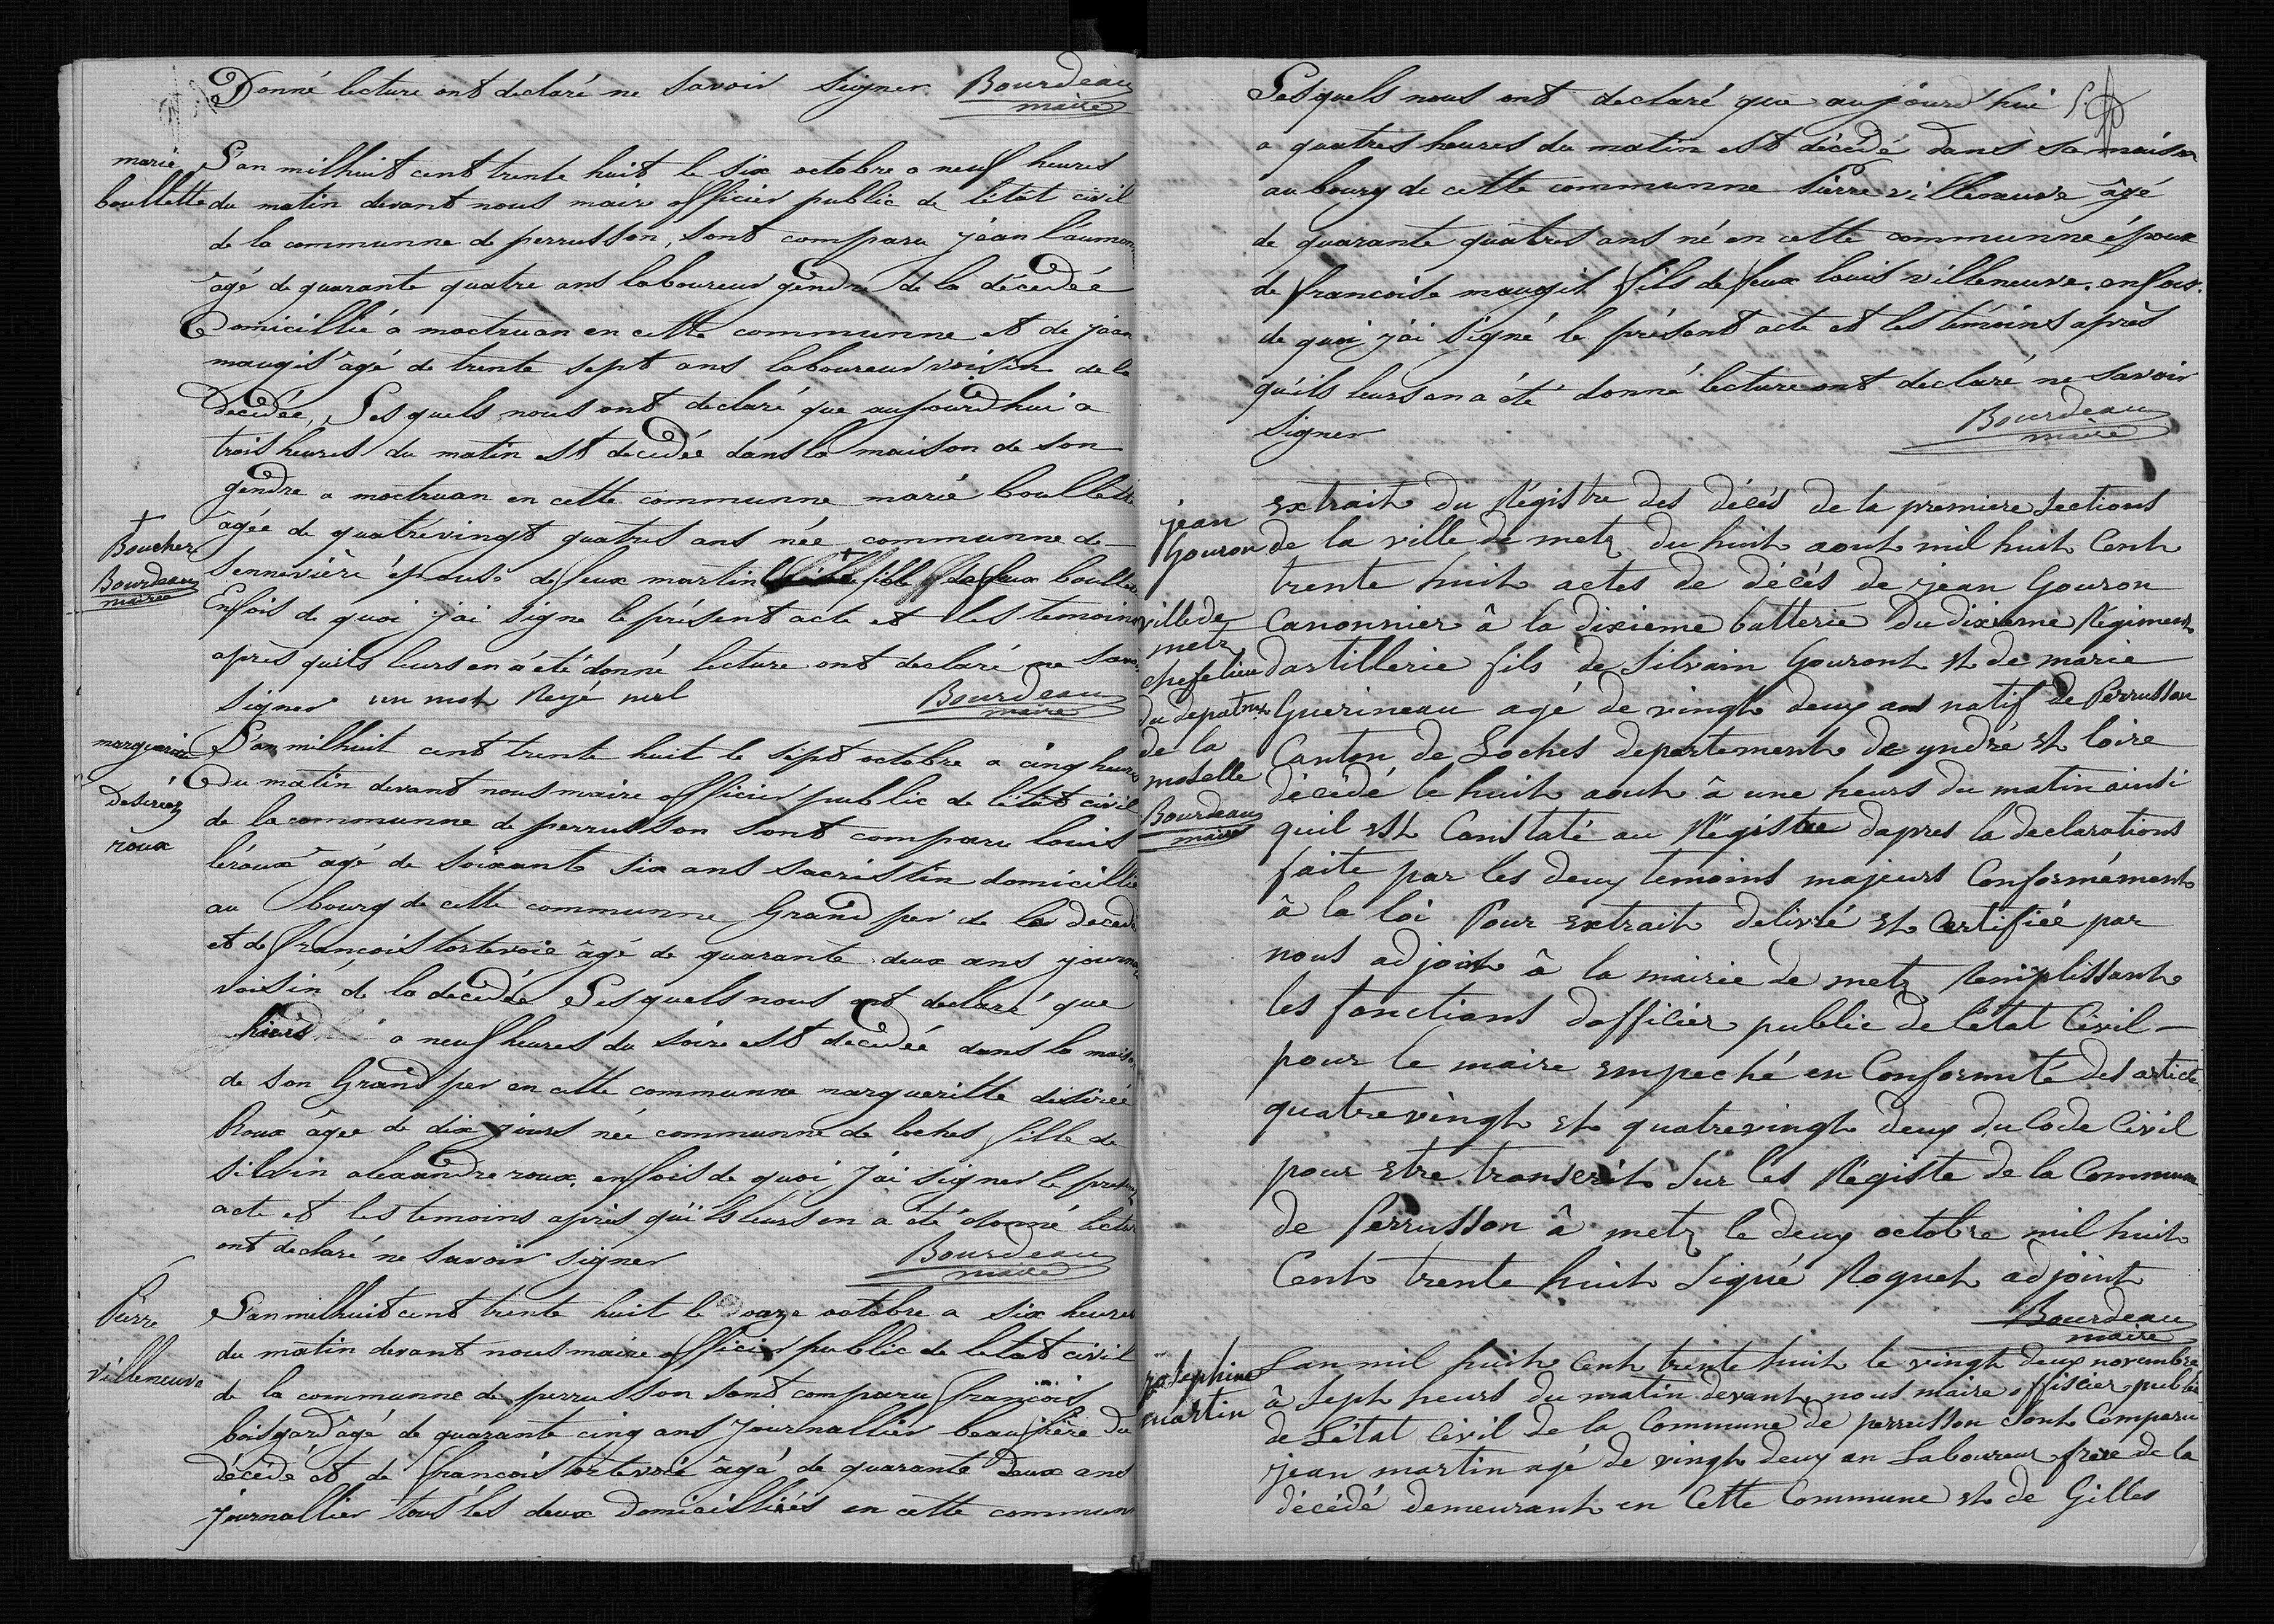 Donné lecture ont declaré ne savoir signer Bourdeau
maire
marie
boullette
L'an milhuit cent trente huit le six octobre a neuf heures
du matin devant nous maire officier public de létat civil
de la communne de perrusson, sont comparu jean
âgé de quarante quatre ans laboureur gendre de la décédéé
Domicillié a moctruan en cette communne et de jean
maugis âgé de trente sept ans laboureur voisin de la
décédée, Lesquels nous ont declaré que aujourdhui a
trois heures du matin est decédée dans la maison de son
gendre a moctruan en cette communne marie boullette
âgée de quatrévingt quatres ans née communne de
sennevière épouse de feux martin fille de feux
†
Boucher
Bourdeau
maire
Enfois de quoi j'ai signe le présent acte et les temoins
après quils leurs en a été donné lecture ont declaré ne
signer un mot Reyé nul
Bourdeau
maire
desirée
roux
L'an milhuit cent trente huit le sept octobre a cinq heures
du matin devant nous maire officier public de létat civil
de la communne de perrusson sont comparu louis
léroux âgé de soixante six ans sacristin domicillié
au bourg de cette communne Grand per de la decedé
et de françois tortevoie âgé de quarante deux ans
voisin de la decédée Lesquels nous ont declaré que
a neuf heures du soire est decédée dans la maison
de son Grand per en cette communne margueritte desirée
Roux âgée de dix jours née communne de loches fille de
silvin alexandre roux, enfois de quoi j'ai signer le present
acte et les temoins après qu'ils leurs en a été donné
ont declaré ne savoir signer
Bourdeau
maire
Pierre
villeneuve
L'an milhuit cent trente huit le octobre a six heures
du matin devant nous maire officier public de letat civil
de la communne de perrusson sont comparu françois
boisgard âgé de quarante cinq ans journallier beaufrère du
décédé et de françois tortevoie âgé de quarante deux ans
journallier tous les deux Domicilliéés en cette communne
Lesquels nous ont declaré que aujourdhui
a quatres heures du matin est décédé dans sa maison
au bourg de cette communne Pierre villeneuve âgé
de quarante quatres ans né en cette communne époux
de francoise maugis fils de feux louis villeneuve. enfois
de quoi j'ai signé le présent acte et les témoins après
qu'ils leurs en a été donné lecture ont declaré ne savoir
signer
Bourdeau
maire
jean
Gouron
extrait du Régistre des décés de la premiere Sections
de la ville de metz du huit aout mil huit Cent
trente huit actes de décés de jean Gouron
ville de
metz
chefelieu
de la
moselle
Bourdeau
maire
Canonnier â la dixieme batterie du dixieme Régiment
dartillerie fils de Silvain Gouront et de marie
Guerineau agé de vingt deux ans natif de Perrusson
Canton de Loches departement de yndre et loire
décédé le huit aout â une heurs du matin ainsi
quil est Constaté au Régistre dapres la declarations
faite par les deux temoins majeurs Conformément
â la loi Pour extrait delivré et Certifiée par
nous adjoint â la mairie de metz Remplissant
les fonctions dofficier public de létat Civil
pour le maire empeché en Conformité des article
quatrevingt et quatrevingt deux du Code Civil
pour etre transcrit sur les Régiste de la Commune
de Perrusson â metz le deux octobre mil huit
Cent trente huit signé Roguet adjoint
Bourdeau
maire
josephine
martin
Lan mil huit Cent trente huit le vingt deux novembre
â Sept heurs du matin devant nous maire offisier public
de Létat Civil de la Commune de perrusson sont Comparu
jean martin agé de vingt deux an Laboureur frere de la
décédé demeurant en Cette Commune et de Gilles